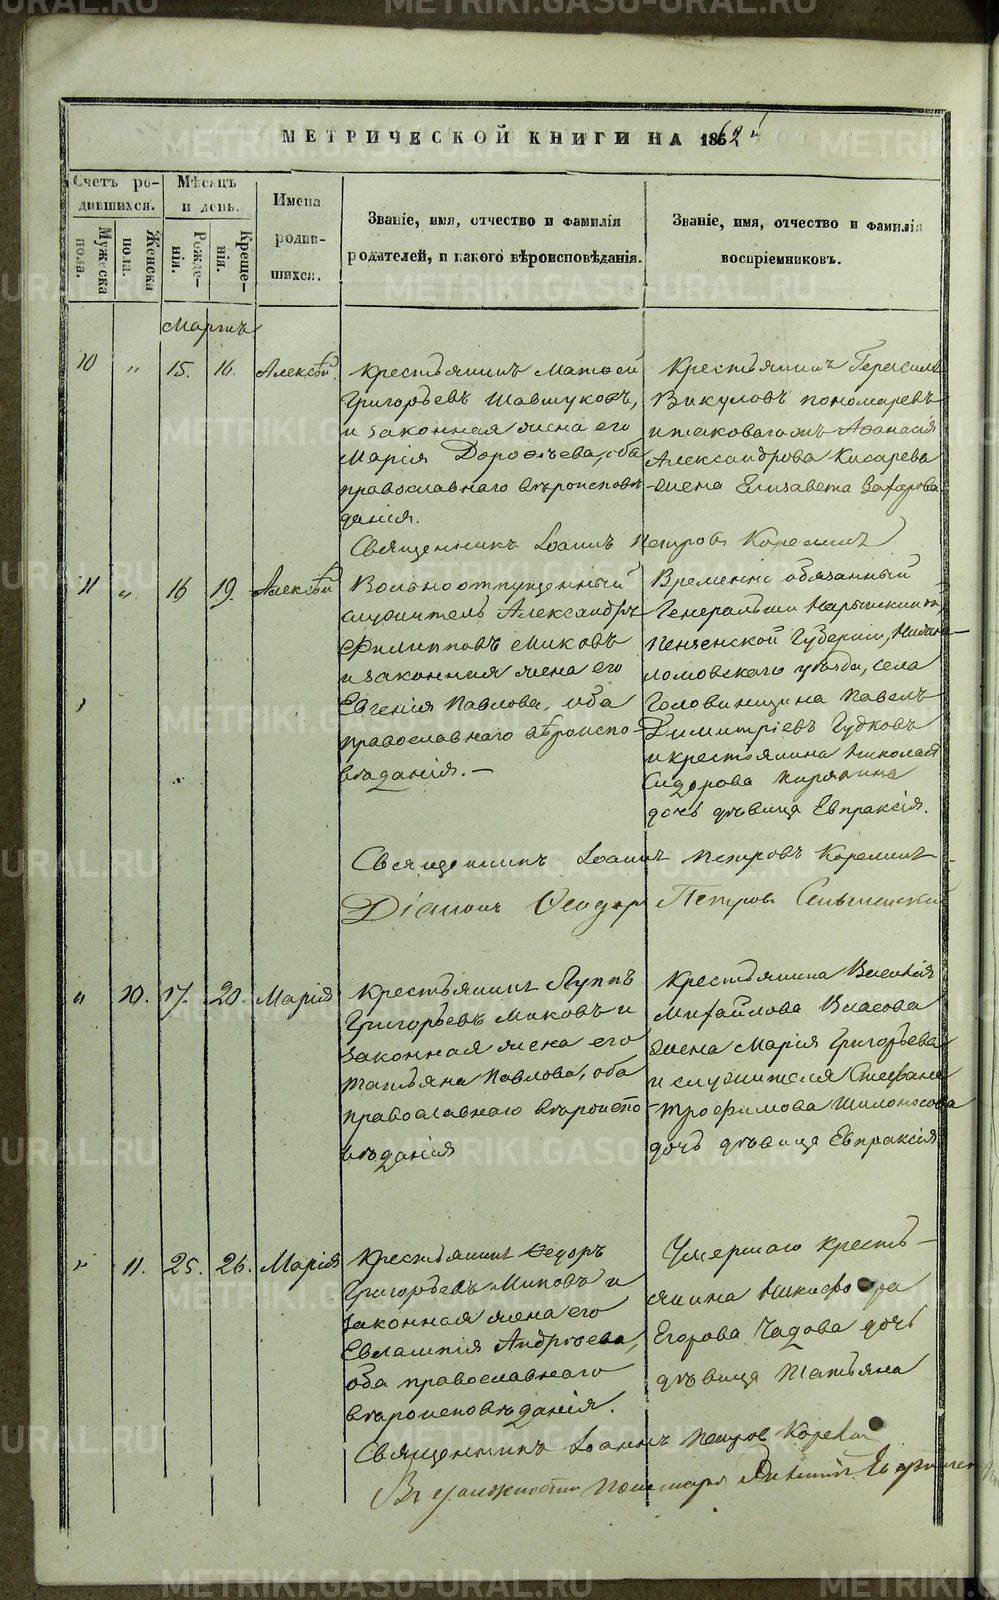 МЕТРИЧЕСКОЙ КНИГИ НА 1862 й
Счетъ ро-
дившихся.
Мужеска
пола.
Женска
пола.
Мѣсяцъ
и день.
Рожде-
нія.
Креще-
нія.
Имена
родив-
шихся.
Званіе, имя, отчество и фамилія
родателей, и какого вѣроисповѣданія.
Званіе, имя, отчество и фамилія
воспріемниковъ.
Мартъ
10 " 15. 16. Алексѣй.
Крестьянинъ Матѳей
Григорьевъ Шавшуковъ,
и законная жена его
Марія Дороѳѣева, оба
православнаго вѣроисповѣ
данія.
Крестьянинъ Герасимъ
Викуловъ Пономаревъ
и таковагожъ Аѳанасія
Александрова Кисарева
жена Елизавета Захарова
Священникъ Іоаннъ Петровъ Корелинъ
11 " 16 19. Алексѣй
Вольноотпущенный
служитель Александръ
Филипповъ Миковъ
и законная жена его
Евгенія Павлова, оба
православнаго вѣроиспо-
вѣданія. —
Временно обязанный
Генеральши Нарышкиной,
Пензенской Губерніи, Нижне-
ломовскаго уѣзда, села
Головинщина Павелъ
Димитріевъ Гудковъ
и крестьянина Николая
Сидорова
дочь дѣвица Евпраксія.
Священникъ Іоаннъ Петровъ Корелинъ
Діаконъ Ѳеодоръ Петровъ
" 10. 17. 20. Марія
Крестьянинъ Луппъ
Григорьевъ Миковъ и
законная жена его
Татьяна Павлова, оба
православнаго вѣроиспо
вѣданія
Крестьянина Василія
Михайлова Власова
жена Марія Григорьева
и служителя Стефана
Трофимова Шилоносова
дочь дѣвица Евпраксія
" 11. 25. 26. Марія
Крестьянинъ Ѳедоръ
Григорьевъ Миковъ и
законная жена его
Евлампія Андреева,
оба православнаго
вѣроисповѣданія.
Умершаго кресть-
янина Никифора
Егорова Чадова дочь
дѣвица Татьяна
Священникъ Іоаннъ Петровъ Корелин
Въ должности пономаря
METRIKI.GASO-URAL.RU